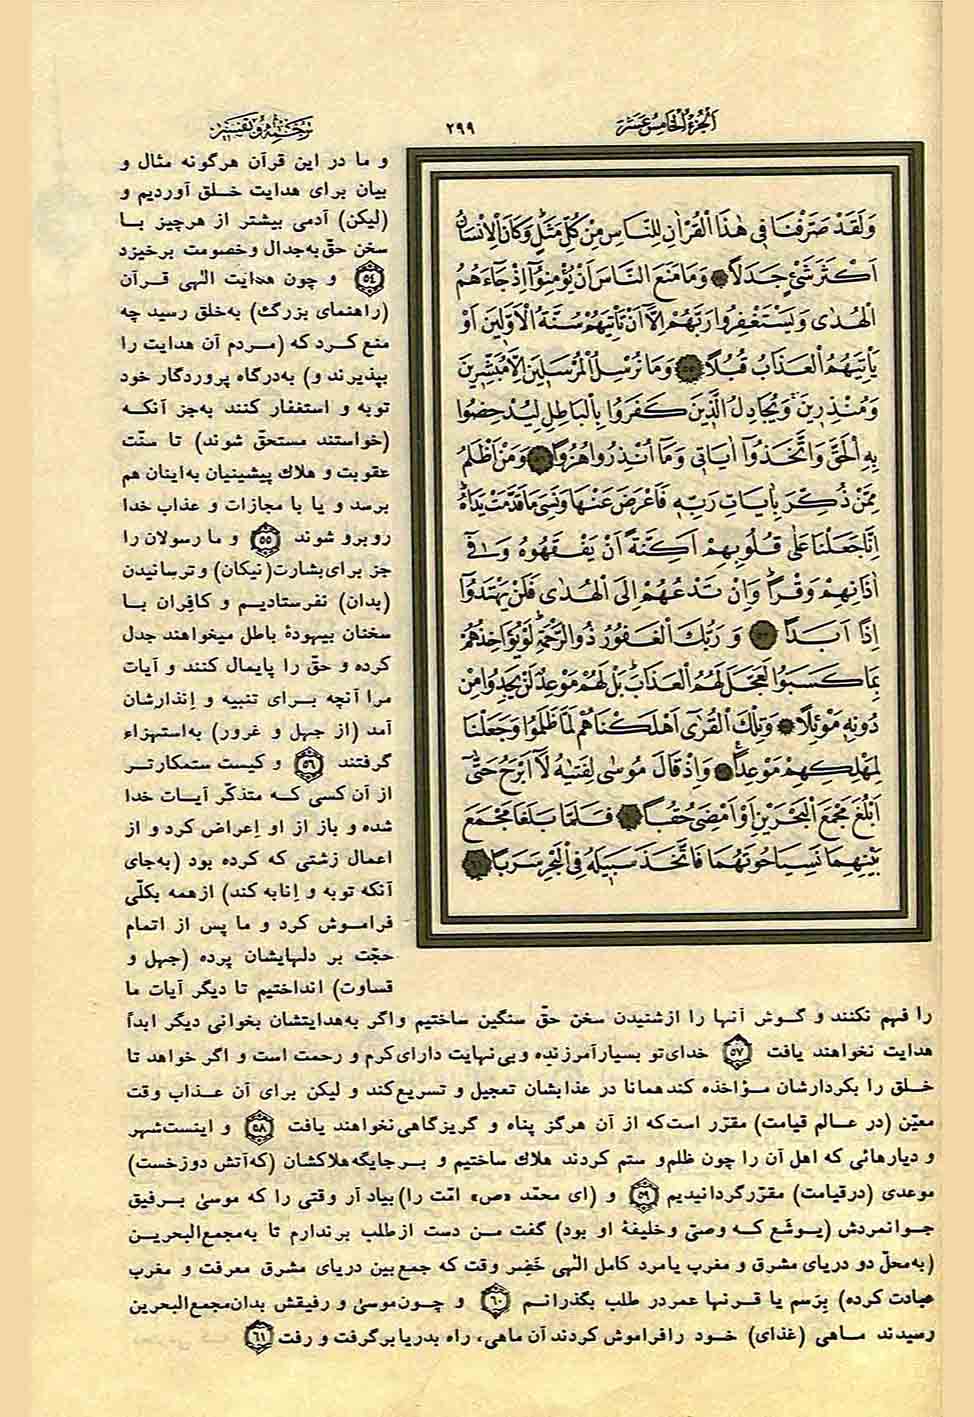 اَلْجُزْءُ الْخَامِسُ عَشَرَ
٢٩٩
ترجمه و تفسیر
وَلَقَدْ صَرَّفْنَا فِى هٰذَا الْقُرْاٰنِ لِلنَّاسِ مِنْ كُلِّ مَثَلٍ وَكَانَ الْاِنْسَانُ
اَكْثَرَ شَىْءٍ جَدَلًا وَمَا مَنَعَ النَّاسَ اَنْ يُؤْمِنُٓوا اِذْ جَٓاءَهُمُ
الْهُدٰى وَيَسْتَغْفِرُوا رَبَّهُمْ اِلَّٓا اَنْ تَأْتِيَهُمْ سُنَّةُ الْاَوَّلٖينَ اَوْ
يَأْتِيَهُمُ الْعَذَابُ قُبُلًا ٥٥ وَمَا نُرْسِلُ الْمُرْسَلٖينَ اِلَّا مُبَشِّرٖينَ
وَمُنْذِرٖينَ وَيُجَادِلُ الَّذٖينَ كَفَرُوا بِالْبَاطِلِ لِيُدْحِضُوا
بِهِ الْحَقَّ وَاتَّخَذُٓوا اٰيَاتٖى وَمَٓا اُنْذِرُوا هُزُوًا وَمَنْ اَظْلَمُ
مِمَّنْ ذُكِّرَ بِاٰيَاتِ رَبِّهٖ فَاَعْرَضَ عَنْهَا وَنَسِىَ مَا قَدَّمَتْ يَدَاهُ
اِنَّا جَعَلْنَا عَلٰى قُلُوبِهِمْ اَكِنَّةً اَنْ يَفْقَهُوهُ وَفٖٓى
اٰذَانِهِمْ وَقْرًا وَاِنْ تَدْعُهُمْ اِلَى الْهُدٰى فَلَنْ يَهْتَدُٓوا
اِذًا اَبَدًا ٥٧ وَرَبُّكَ الْغَفُورُ ذُو الرَّحْمَةِ لَوْ يُؤَاخِذُهُمْ
بِمَا كَسَبُوا لَعَجَّلَ لَهُمُ الْعَذَابَ بَلْ لَهُمْ مَوْعِدٌ لَنْ يَجِدُوا مِنْ
دُونِهٖ مَوْئِلًا وَتِلْكَ الْقُرٰٓى اَهْلَكْنَاهُمْ لَمَّا ظَلَمُوا وَجَعَلْنَا
لِمَهْلِكِهِمْ مَوْعِدًا وَاِذْ قَالَ مُوسٰى لِفَتٰيهُ لَٓا اَبْرَحُ حَتّٰٓى
اَبْلُغَ مَجْمَعَ الْبَحْرَيْنِ اَوْ اَمْضِىَ حُقُبًا فَلَمَّا بَلَغَا مَجْمَعَ
بَيْنِهِمَا نَسِيَا حُوتَهُمَا فَاتَّخَذَ سَبٖيلَهُ فِى الْبَحْرِ سَرَبًا
و ما در این قرآن هرگونه مثال و
بیان برای هدایت خلق آوردیم و
(لیکن) آدمی بیشتر از هرچیز با
سخن حقّ به‌جدال وخصومت برخیزد
٥٤ و چون هدایت الٰهی قرآن
(راهنمای بزرگ) به‌خلق رسید چه
منع کرد که (مردم آن هدایت را
بپذیرند و) به‌درگاه پروردگار خود
توبه و استغفار کنند به‌جز آنکه
(خواستند مستحقّ شوند) تا سنّت
عقوبت و هلاك پیشینیان به‌اینان هم
برسد و یا با مجازات و عذاب خدا
روبرو شوند ٥٥ و ما رسولان را
جز برای‌بشارت(نیکان) وترسانیدن
(بدان) نفرستادیم و کافِران با
سخنان بیهودهٔ باطل میخواهند جدل
کرده و حقّ را پایمال کنند و آیات
مرا آنچه برای تنبیه و اِنذارشان
آمد (از جهل و غرور) به‌استهزاء
گرفتند ٥٦ و کیست ستمکارتر
از آن کسی که متذکّر آیات خدا
شده و باز از او اِعراض کرد و از
اعمال زشتی که کرده بود (به‌جای
آنکه توبه و اِنابه کند) ازهمه بکلّی
فراموش کرد و ما پس از اتمام
حجّت بر دلهایشان پرده (جهل و
قساوت) انداختیم تا دیگر آیات ما
را فهم نکنند و گوش آنها را ازشنیدن سخن حقّ سنگین ساختیم واگر به‌هدایتشان بخوانی دیگر ابداً
هدایت نخواهند یافت ٥٧ خدای‌تو بسیارآمرزنده وبی‌نهایت دارای‌کرم و رحمت است و اگر خواهد تا
خلق را بکردارشان مؤاخذه کندهمانا در عذابشان تعجیل و تسریع‌کند و لیکن برای آن عذاب وقت
معیّن (در عالم قیامت) مقرّر است‌که از آن هرگز پناه و گریزگاهی‌نخواهند یافت ٥٨ و اینست‌شهر
و دیارهائی که اهل آن را چون ظلم‌و ستم کردند هلاك ساختیم و برجایگه‌هلاکشان (که‌آتش دوزخست)
موعدی (درقیامت) مقرّرگردانیدیم ٥٩ و (ای محمّد «ص» امّت را)بیاد آر وقتی را که موسیٰ برفیق
جوانمردش (یوشَع که وصیّ وخلیفهٔ او بود) گفت من دست ازطلب برندارم تا به‌مجمع‌البحرین
(به‌محلّ دو دریای مشرق و مغرب یامرد کامل الٰهی خَضِر وقت که جمع‌بین دریای مشرق معرفت و مغرب
عبادت کرده) برَسم یا قرنها عمردر طلب بگذرانم ٦٠ و چون‌موسیٰ و رفیقش بدان‌مجمع‌البحرین
رسیدند ماهی (غذای) خود رافراموش کردند آن ماهی، راه بدریابرگرفت و رفت ٦١